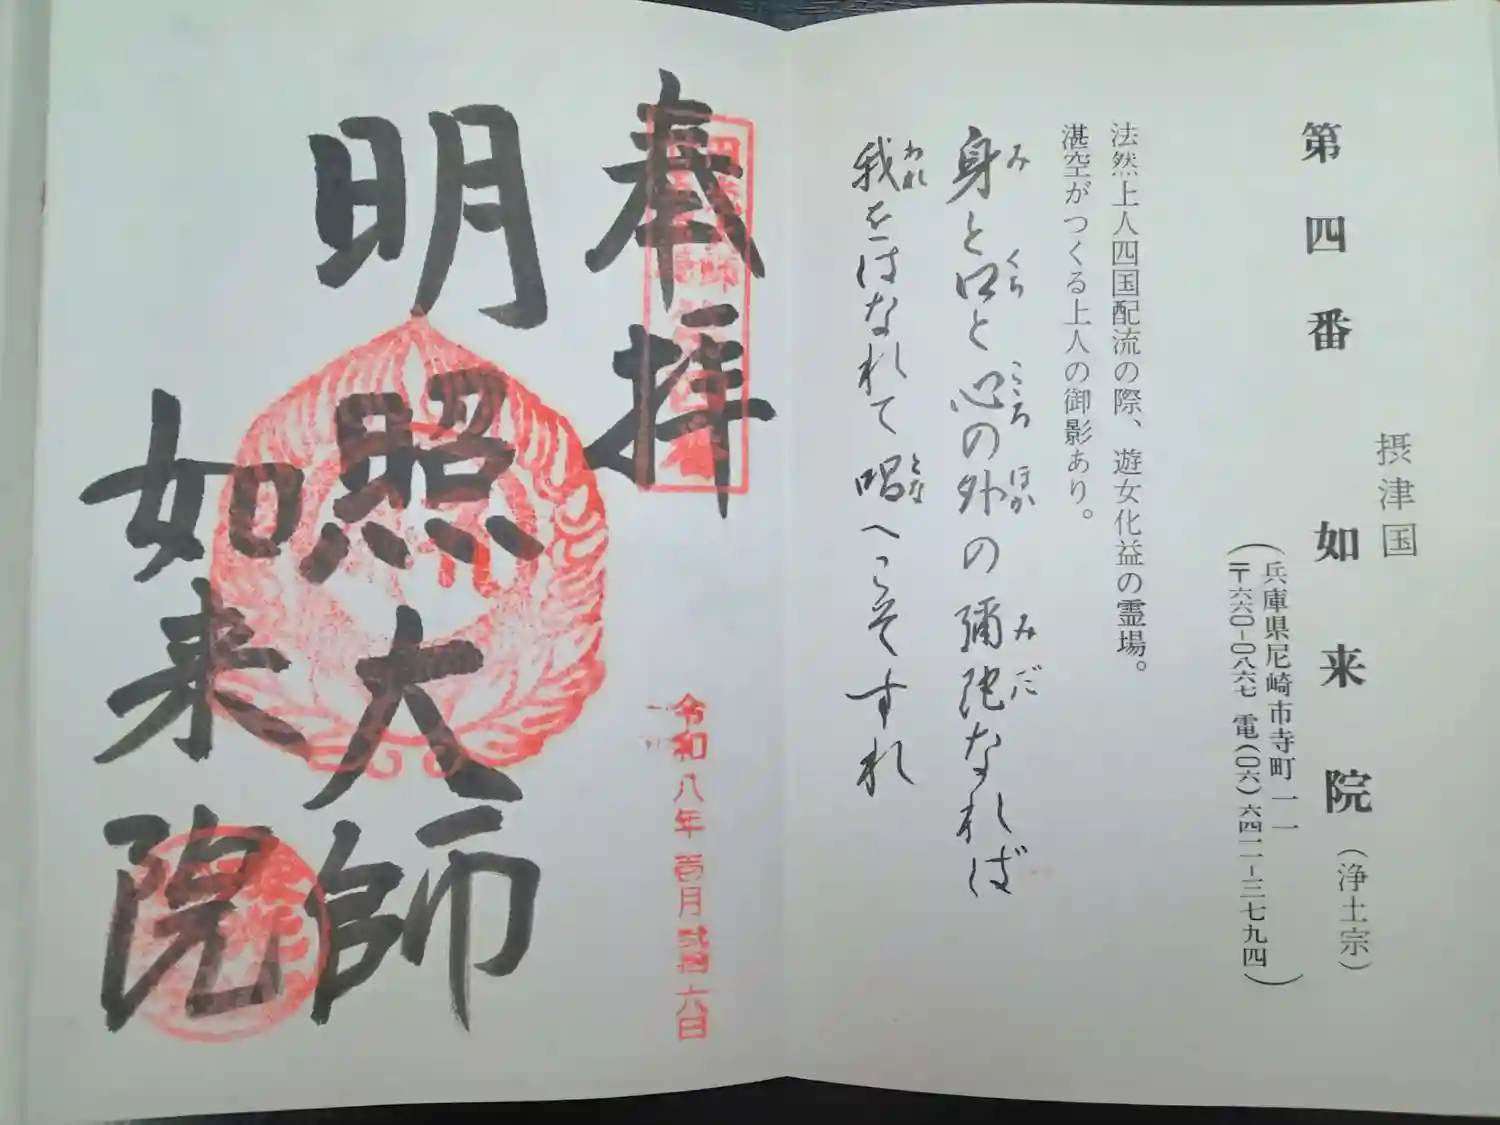 摂津国
第四番 如来院（浄土宗）
（兵庫県尼崎市寺町一一
〒六六〇-〇八六七 電(〇六)六四一一-三七九四）
法然上人四国配流の際、遊女化益の霊場。
湛空がつくる上人の御影あり。
み くち こころ ほか みだ
身と口と心の外の彌陀なれば
われ とな
我をはなれて唱へこそすれ
奉拝
令和八年 月 六日
明照大師
如来院